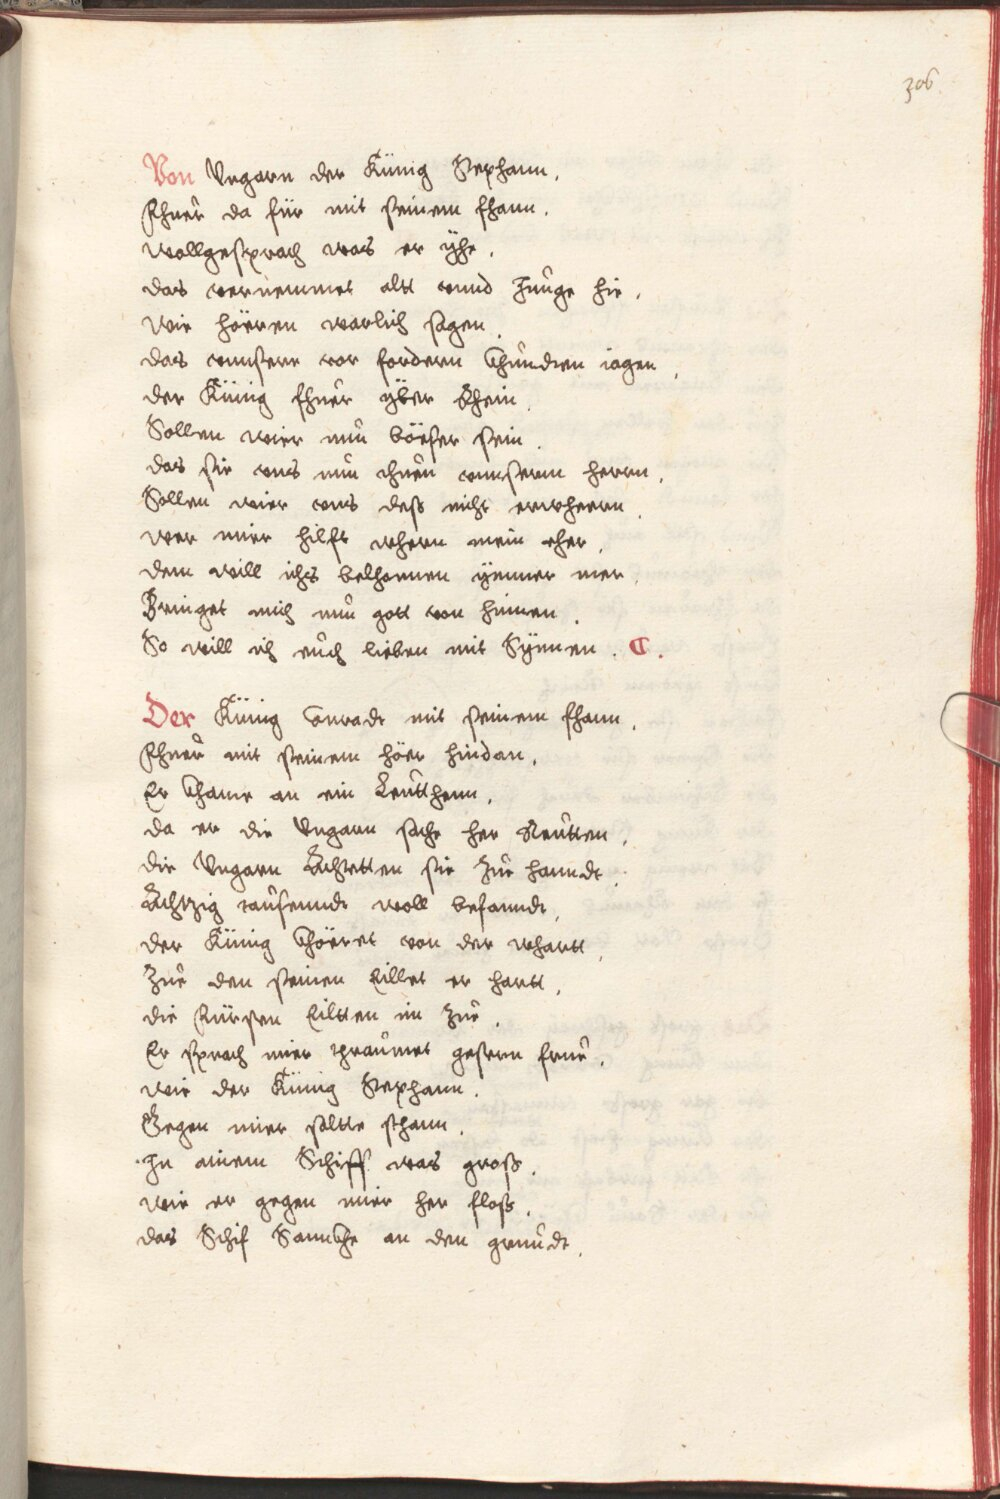 306
Von Vngarn der Künig Stephann.
Fhuer da für mit seinem fhann.
wollgesprach was er yhe.
das vernemmet altt vnnd Junge hie.
Wir hörren warlich sagen.
das vnnserr vor fordern Chundten iagen.
der Künig fhuer yber Rhein.
Sollen wier nun böeser sein.
das sie vns nun thuen vnnserm herrn.
Sollen wier vns deß nicht erwherrn.
wer mier hilfft whern mein eher.
dem will ichs belhonnen ymmer mer.
Bringet mich nun gott von hinnen.
So will ich euch lieben mit Synnen. C.
Der Künig Conradt mit seinem fhann.
Fhuer mit seinem höer hindan.
Er Chame an ein Leutthenn.
da er die Vngarn sache her Reutten.
die Vngarn Achtetten sie Zue hanndt.
Achtzig tausenndt woll besanndt.
der Künig Chörret von der whartt.
Zue den seinen Eillet er hartt.
die Fürsten Eiltten im Zue.
Er sprach mier thraumet gestern frue.
wie der Künig Stephann.
Gegen mier soltte sthann.
In ainem Schiff was groß.
wie er gegen mier her floß.
das Schif Sannckhe an den grundt.